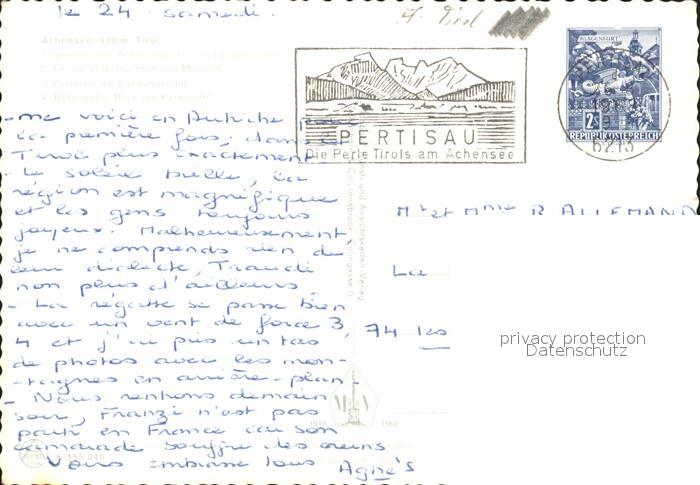 le 24 samedi.
A. Tirol
Achensee, 930 m, Tirol
KLAGENFURT
2S
REPUBLIK ÖSTERREICH
PERTISAU
6213
PERTISAU
Die Perle Tirols am Achensee
- me voici en Autriche pour
la première fois, dans le
Tirol plus exactement.
- Le soleil brille, la
région est magnifique
et les gens toujours
joyeux. Malheureusement
je ne comprends rien de
leur dialecte, Traudi
non plus d'ailleurs.
- La régate se passe bien
avec un vent de force 3,
4 et j'ai pris un tas
de photos avec les mon-
-tagnes en arrière-plan.
- Nous rentrons demain
soir, Franzi n'est pas
parti en France car son
camarade souffre des reins
Vous embrasse tous Agnès
Mr et Mme R ALLEMAND
La
74 les
privacy protection
Datenschutz
1918 1968
155 040